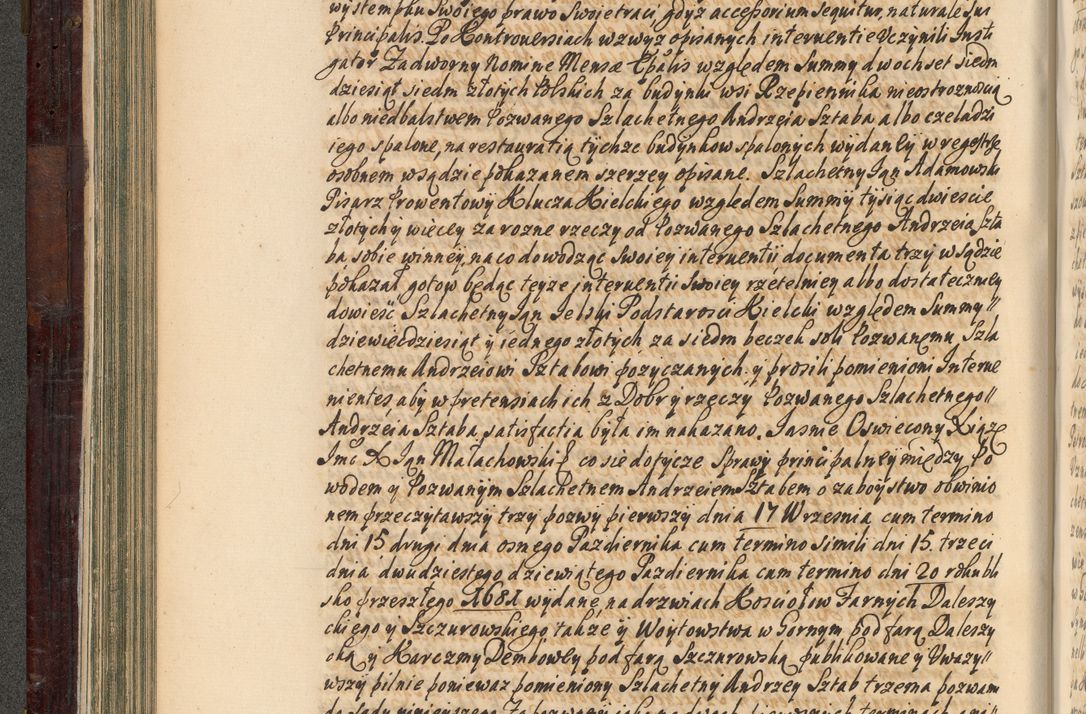 występku swoiego prawo swoie traci, gdyz accessorium sequitur, naturale sui
Principalis. Po Kontrouersiach wzwyz opisanych interuentie Uczynili Insti
gator Zadworny Nomine Mensæ Epalis względem Summy dwochset siedm
dziesiąt siedm złotych Polskich za budynki wsi Rzepiennika nieostroznoscią
albo niedbalstwem Pozwanego Szlachetnego Andrzeia Sztaba albo czeladzi
iego spalone, na restauratią tychze budynkow spalonych wydanły w regestrze
osobnem w sądzie pokazanem szerzey opisane. Szlachetny Jan Adamowski
Pisarz Prowentowy Klucza Kielckiego względem Summy tysiąc dwiescie
złotych y więcey za rozne rzeczy od Pozwanego Szlachetnego Andrzeia Szta
ba sobie winney, na co dowodząc swoiey interuentii documenta trzy w sądzie
pokazał gotow będąc teyze interuentii swoiey rzetelniey albo dostateczniey
dowieść Szlachetny Jan Jelski Podstarosci Kielcki względem Summy //
dziewięcdziesiąt y iednego złotych za siedm beczek soli Pozwanemu Szla
chetnemu Andrzeiowi Sztabowi pozyczanych. y prosili pomienioni Interue
nientes, aby w pretensiach ich z Dobr y rzeczy Pozwanego Szlachetnego //
Andrzeia Sztaba satisfactia była im nakazano. Jasnie Oswiecony Xiąze
Jmc X Jan Małachowski co sie dotycze Sprawy principalney między Po
wodem y Pozwanym Szlachetnem Andrzeiem Sztabem o zaboystwo obwinio
nem przeczytawszy trzy pozwy pierwszy dnia 17 Wrzesnia cum termino
dni 15 drugi dnia osnego Pazdiernika cum termino simili dni 15. trzeci
dnia dwudziestego dziewiątego Pazdiernika cum termino dni 20 roku bli
sko przeszłego 1681 wydane, na drzwiach Kosciołow Farnych Daleszy
ckiego y Szczurowskiego także y Woytowstwa w Gornym pod farą Daleszy
cką y Karczmy Dembowły pod farą Szczurowską publikowane y Uwazy //
wszy pilnie poniewaz pomieniony Szlachetny Andrzey Sztab trzema pozwam